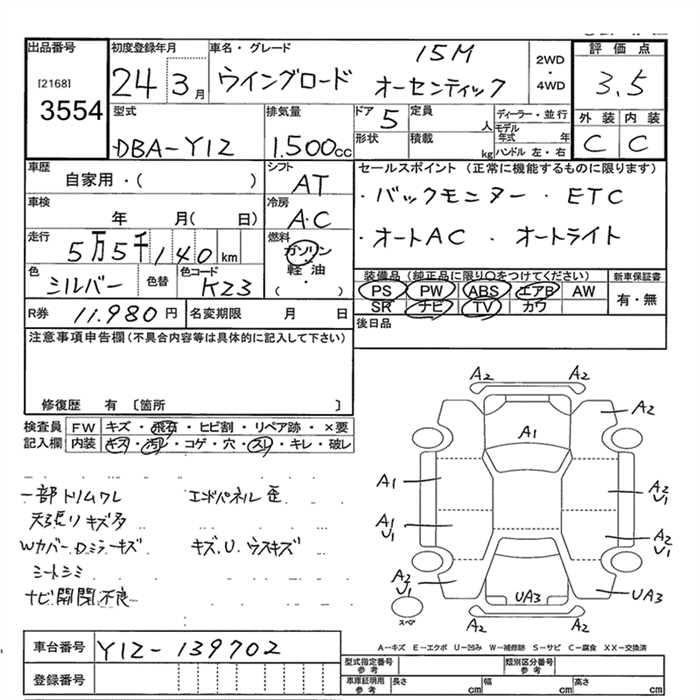 出品番号 初度登録年月 車名・グレード 15M 2WD・4WD 評価点
[2168]
3554
24 3月 ウイングロード オーセンティック 3.5
型式 排気量 ドア 5 定員 人 ディーラー・並行 外装 内装
モデル年式 年
DBA-Y12 1.500cc 形状 積載 kg ハンドル 左・右 C C
車歴 シフト セールスポイント(正常に機能するものに限ります)
自家用・( ) AT ・バックモニター ・ETC
車検 冷房
年 月( 日) A・C ・オートAC ・オートライト
走行 燃料
5万5千140km ガソリン
軽油
・
( )
色 色替 色コード 装備品(純正品に限り○をつけてください) 新車保証書
シルバー K23 PS PW ABS エアB AW 有・無
SR ナビ TV カワ
R券 11.980円 名変期限 月 日 後日品
注意事項申告欄(不具合内容等は具体的に記入して下さい)
修復歴 有 〔箇所 〕
検査員 FW キズ・飛石・ヒビ割・リペア跡・×要
記入欄 内装 キズ・汚レ・コゲ・穴・スレ・キレ・破レ
一部トリムワレ エンドパネル歪
天張りキズ多
Wカバー・Dミラーキズ キズ.U.ウスキズ
シートシミ
ナビ開閉不良
A2 A2
A2
A1
A1
A2
U1
A1
U1
A2
U1
A2
U1
UA3 UA3
スペア
A2 A2
A-キズ E-エクボ U-凹み W-補修跡 S-サビ C-腐食 XX-交換済
車台番号 Y12-139702
型式指定番号 参考 類別区分番号 参考
登録番号 車庫証明用 参考 長さ cm 幅 cm 高さ cm